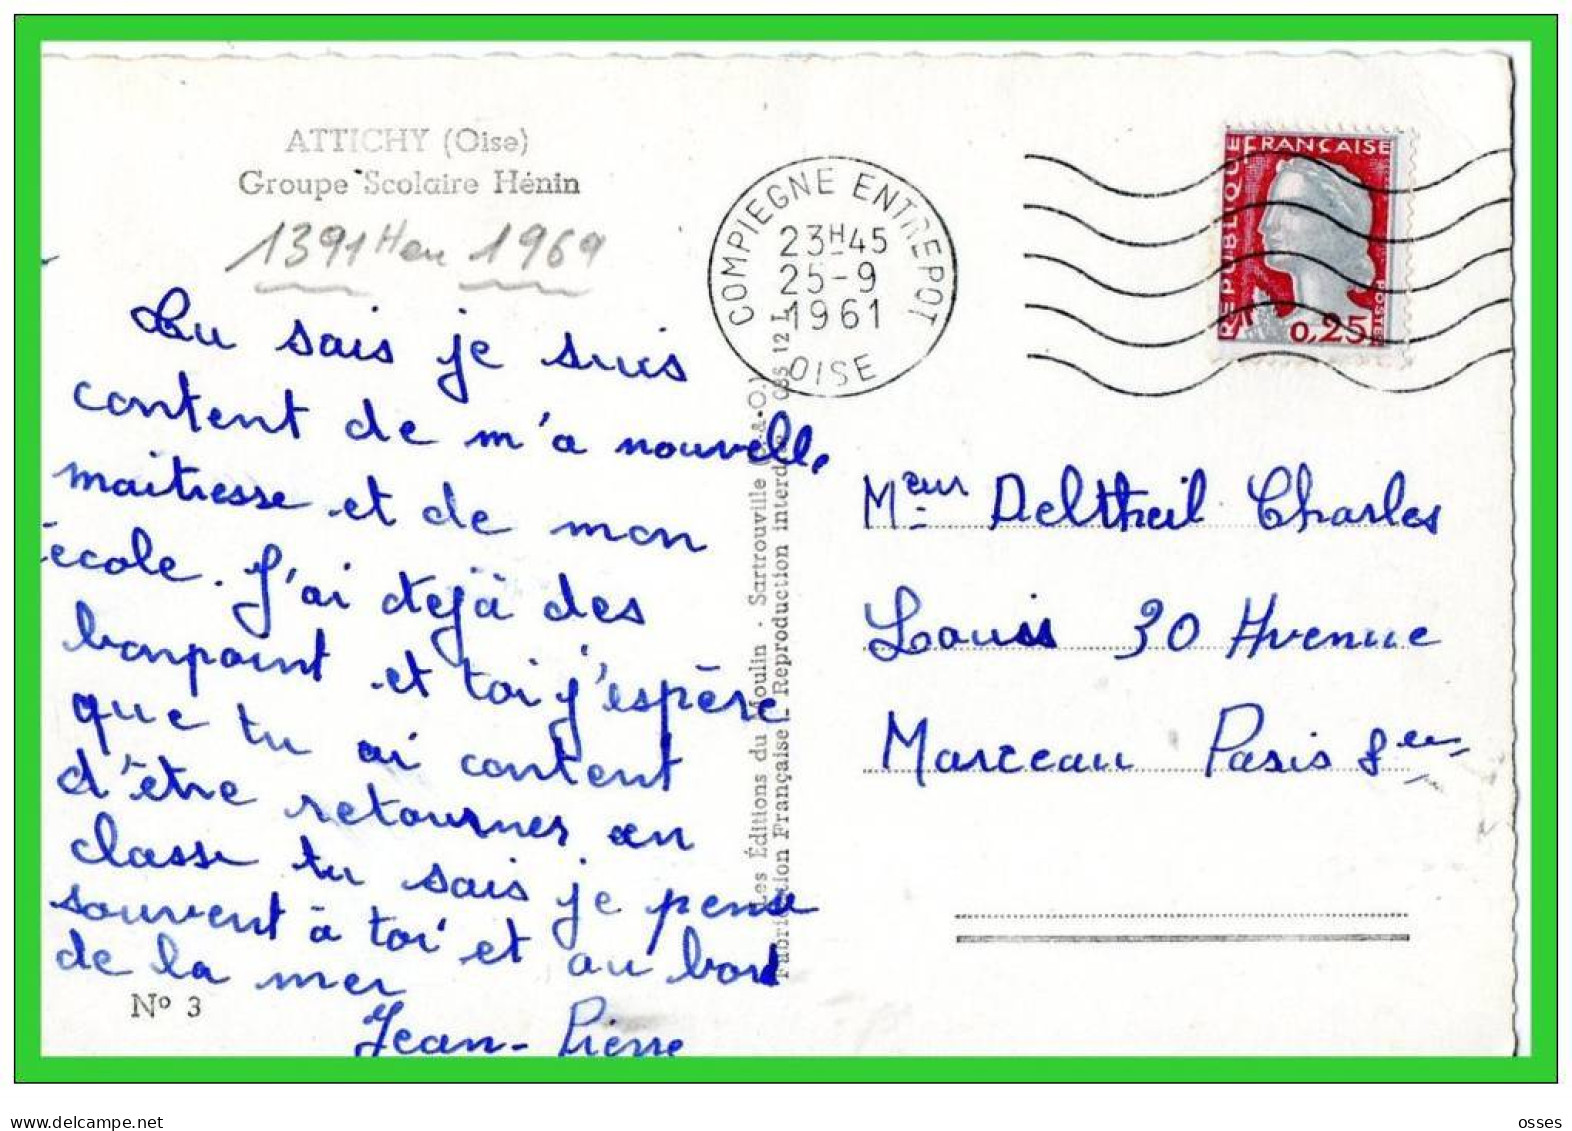 ATTICHY (Oise)
Groupe Scolaire Hénin
1391 Hen 1969
Tu sais je suis
content de m'a nouvelle
maitresse et de mon
école. J'ai dejà des
bonpoint et toi j'espère
que tu ai content
d'être retourner en
classe tu sais je pense
souvent à toi et au bord
de la mer
Jean-Pierre
Nº 3
Les Éditions du Moulin . Sartrouville (S.-&-O.)
Fabrication Française - Reproduction interdite
COMPIEGNE ENTREPOT
23H45
25-9
1961
OISE
REPUBLIQUE FRANÇAISE
POSTES
0,25
Meur Deltheil Charles
Louis 30 Avenue
Marceau Paris 8em
delcampe.net
osses